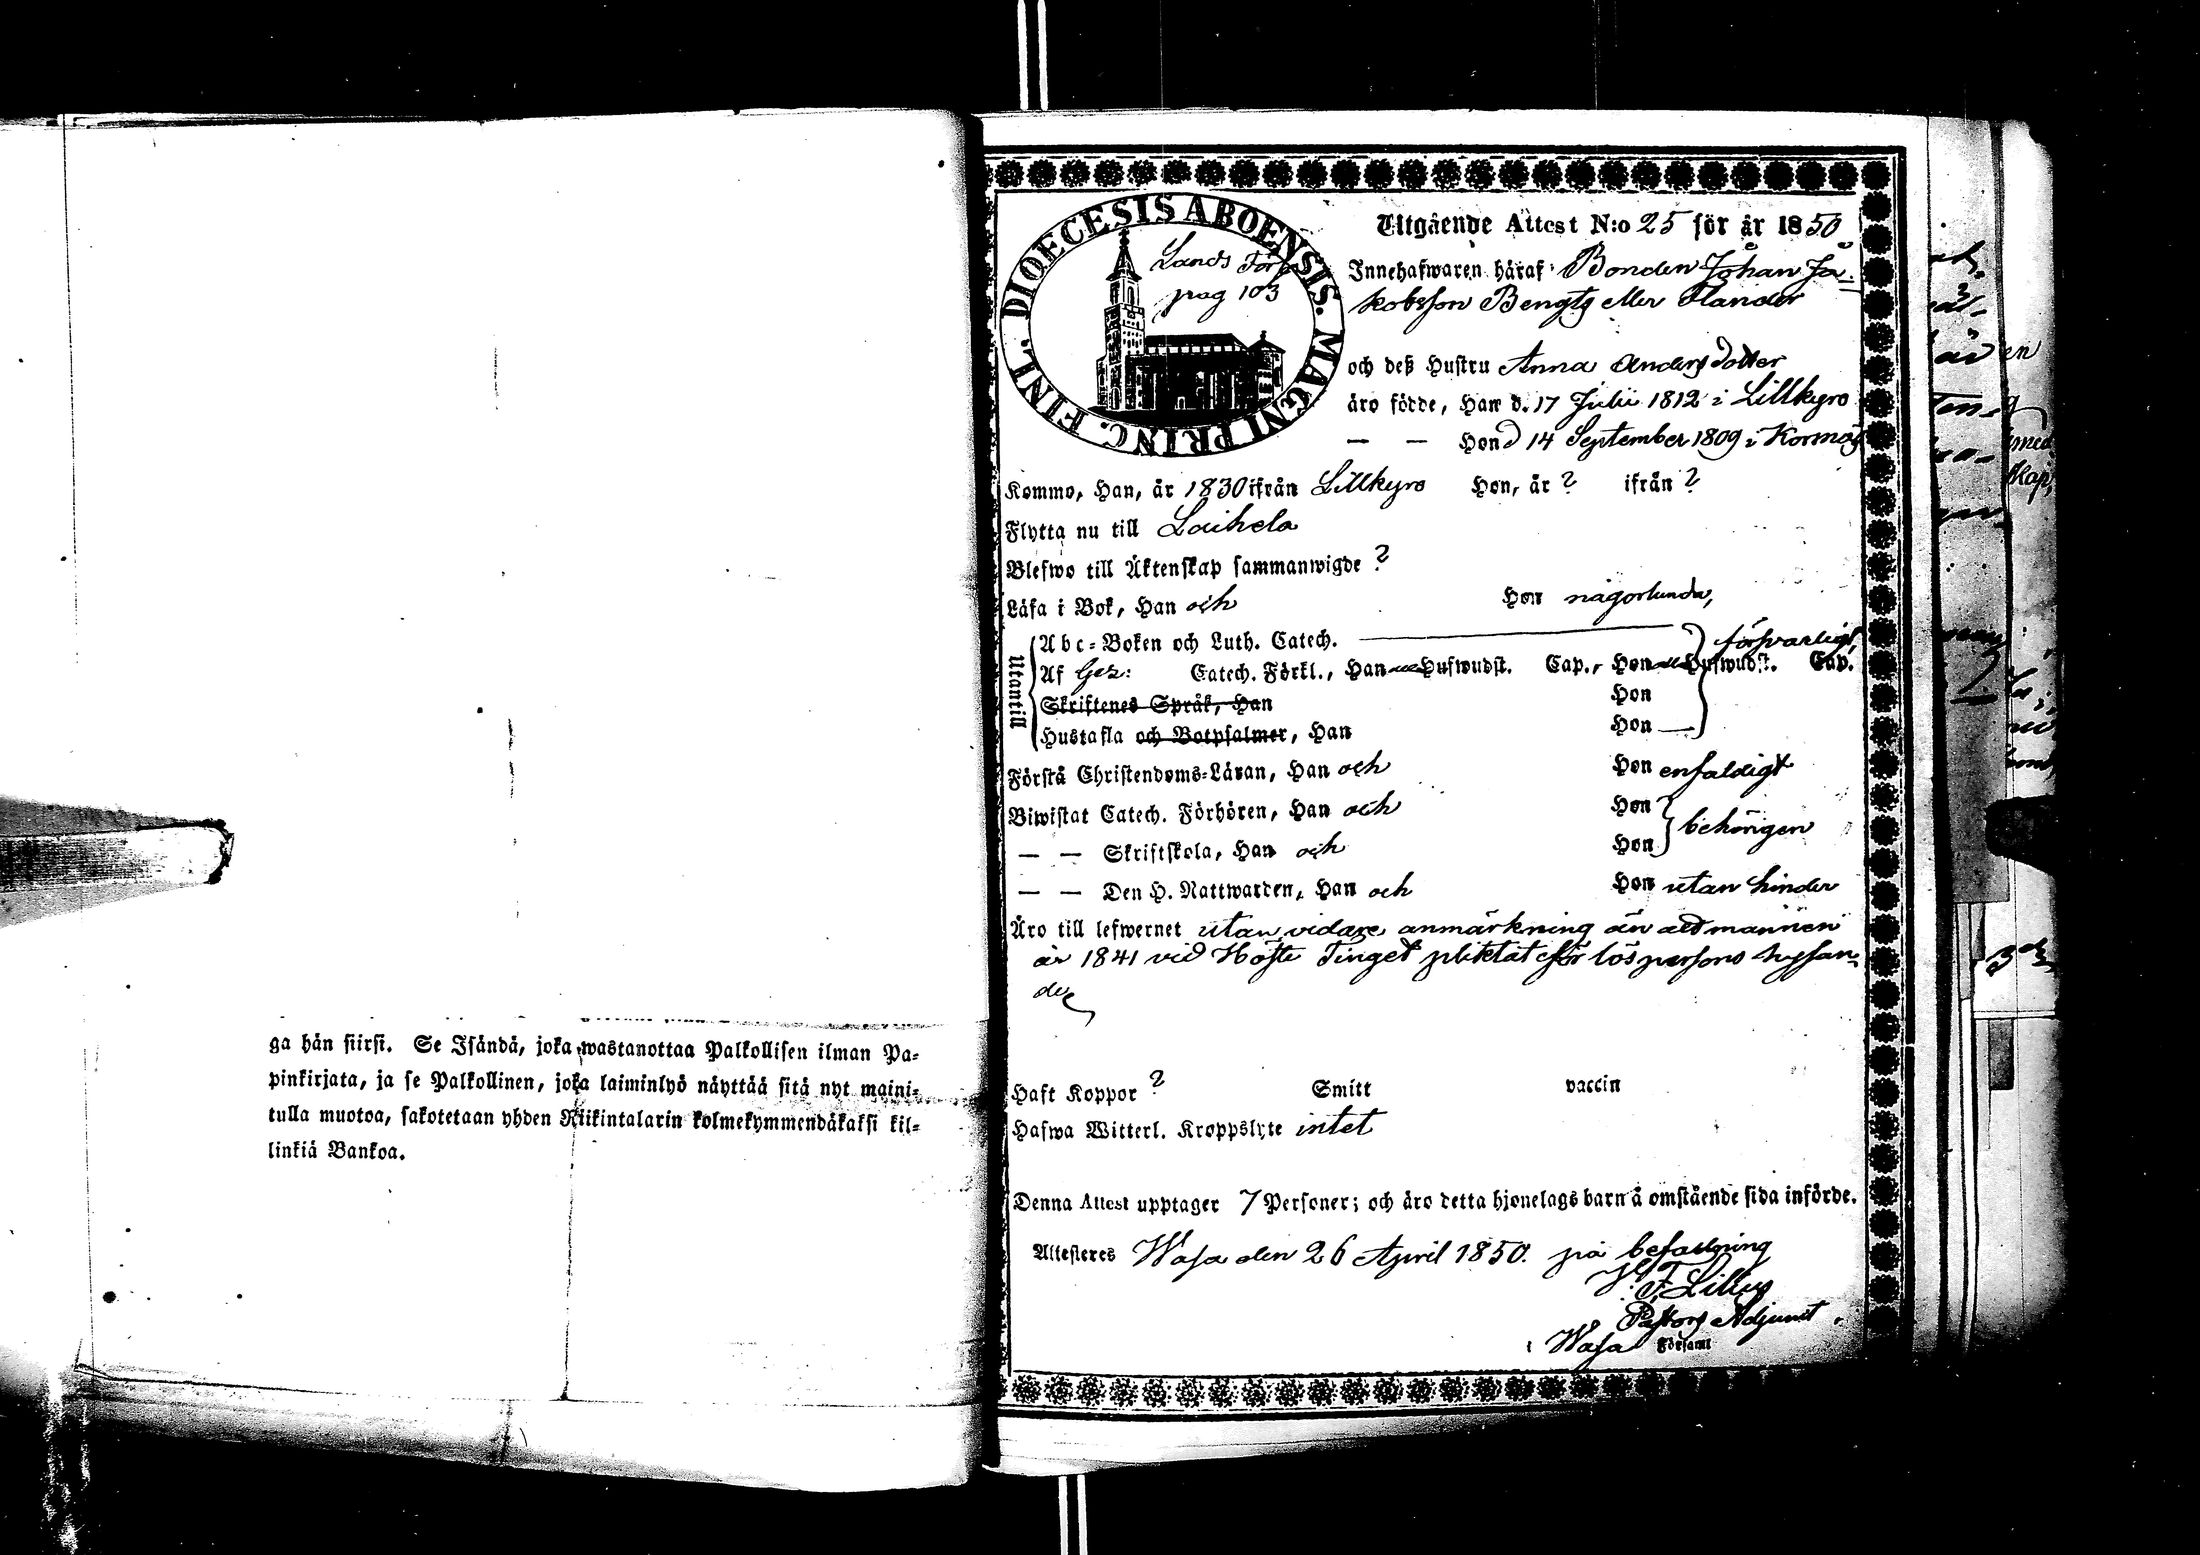 ga hän siirsi. Se Isändä, joka wastanottaa Palkollisen ilman Pa-
pinkirjata, ja se Palkollinen, joka laiminlyö näyttää sitä nyt maini-
tulla muotoa, sakotetaan yhden Riikintalarin kolmekymmendäkaksi kil-
linkiä Bankoa.
DIOECESIS ABOENSIS. MAGNI PRINC. FINL.
Lands Förs
pag 103
Utgående Attest N:o 25 för år 1850
Innehafwaren häraf Bonden Johan Ja-
kobsson Bengts eller Flander
och deß Hustru Anna Andersdotter
äro födde, Han d. 17 Julii 1812 i Lillkyro
— — Hon d 14 September 1809 i Korsnäs
Komme, Han, år 1830 ifrån Lillkyro Hon, år ? ifrån ?
Flytta nu till Laihela
Blefwo till Äktenskap sammanwigde ?
Läsa i Bok, Han och Hon någorlunda,
Utantill
Abc-Boken och Luth. Catech. försvarligt,
Af Gez: Catech. Förkl., Han Hufwudst. Cap., Hon Hufwudst. Cap.
Skriftenes Språk, Han Hon
Hustafla och Botpsalmer, Han Hon
Förstå Christendoms-Läran, Han och Hon enfaldigt
Biwistat Catech. Förhören, Han och Hon behörigen
— — Skriftskola, Han och Hon
— — Den H. Nattwarden, Han och Hon utan hinder
Äro till lefwernet utan vidare anmärkning än att mannen
år 1841 vid Höste Tinget pliktat för lös persons hysan-
de
Haft Koppor ? Smitt vaccin
Hafwa Witterl. Kroppslyte intet
Denna Attest upptager 7 Personer; och äro detta hjonelags barn å omstående sida införde.
Attesteres Wasa den 26 April 1850. på befallning
F. Lillus
Pastors Adjunct.
i Wasa Församl